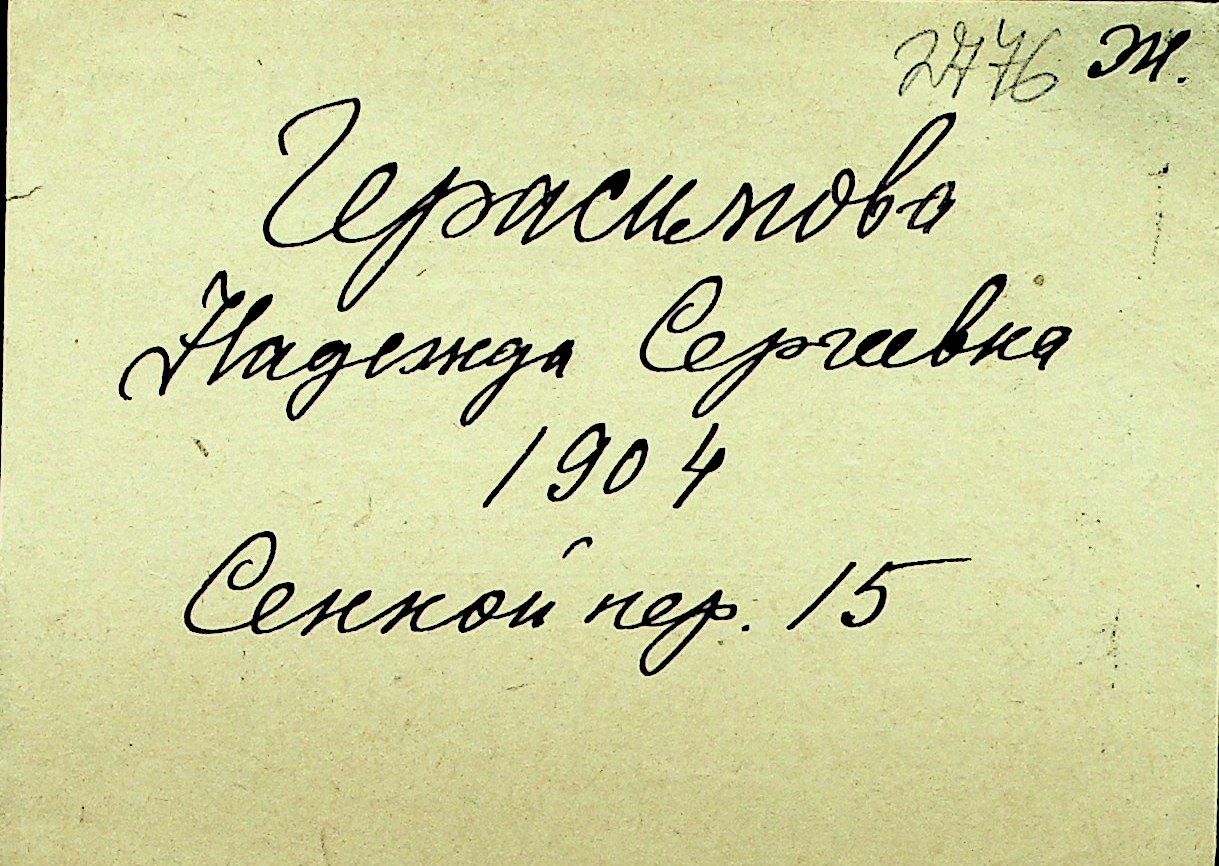 2476 Ж.
Герасимова
Надежда Сергеевна
1904
Сенной пер. 15